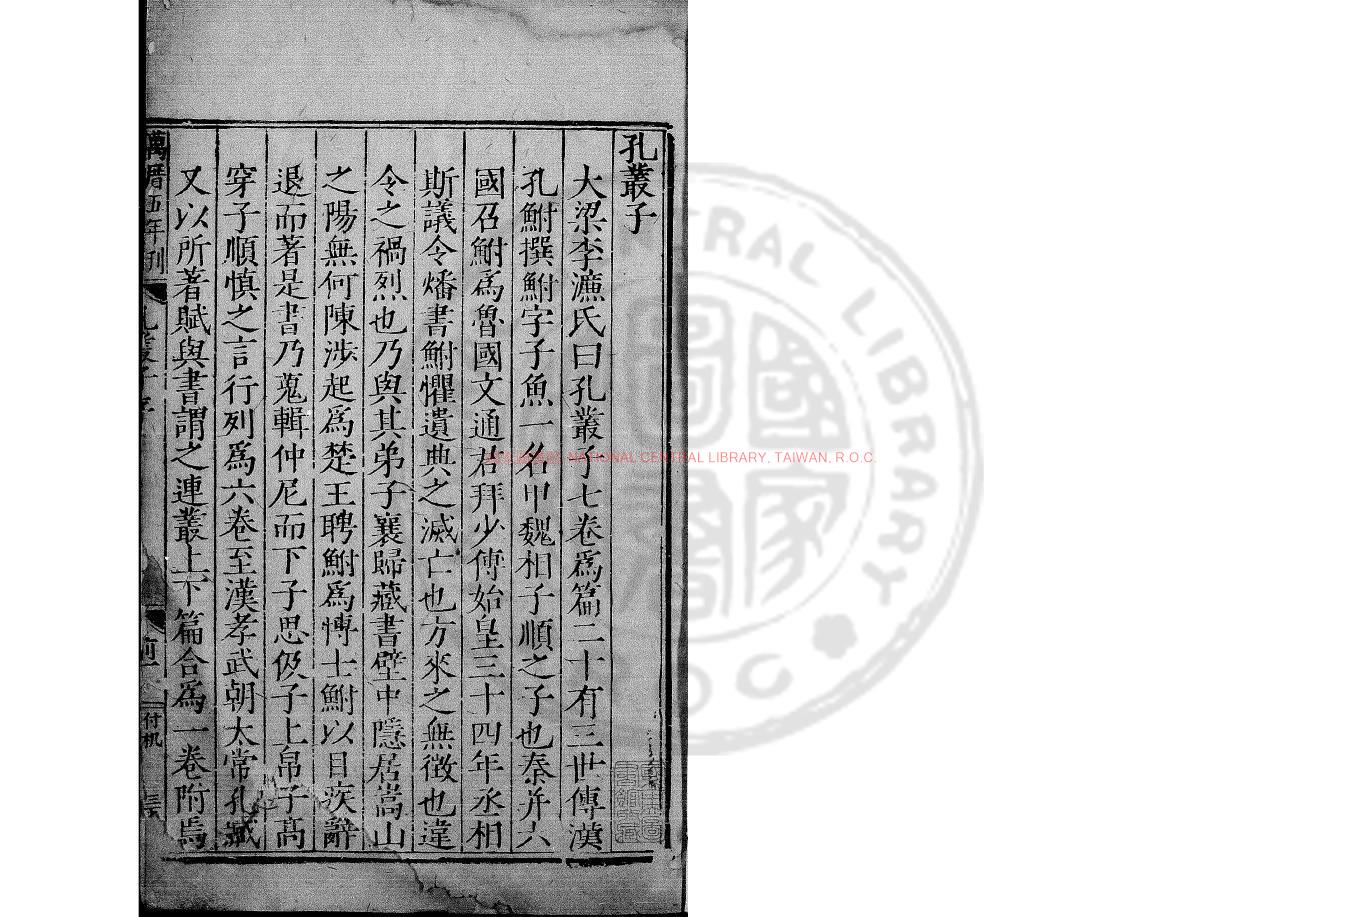 孔叢子
大梁李濂氏曰孔叢子七卷爲篇二十有三世傳漢
孔鮒撰鮒字子魚一名甲魏相子順之子也秦并六
國召鮒爲魯國文通君拜少傅始皇三十四年丞相
斯議令燔書鮒懼遺典之滅亡也方來之無徵也違
令之禍烈也乃與其弟子襄歸藏書壁中隱居嵩山
之陽無何陳涉起爲楚王聘鮒爲博士鮒以目疾辭
退而著是書乃蒐輯仲尼而下子思伋子上帛子高
穿子順慎之言行列爲六卷至漢孝武朝太常孔臧
又以所著賦與書謂之連叢上下篇合爲一卷附焉
萬曆五年刊
孔叢子
付机
NATIONAL CENTRAL LIBRARY, TAIWAN, R.O.C.
CENTRAL LIBRARY
ROC